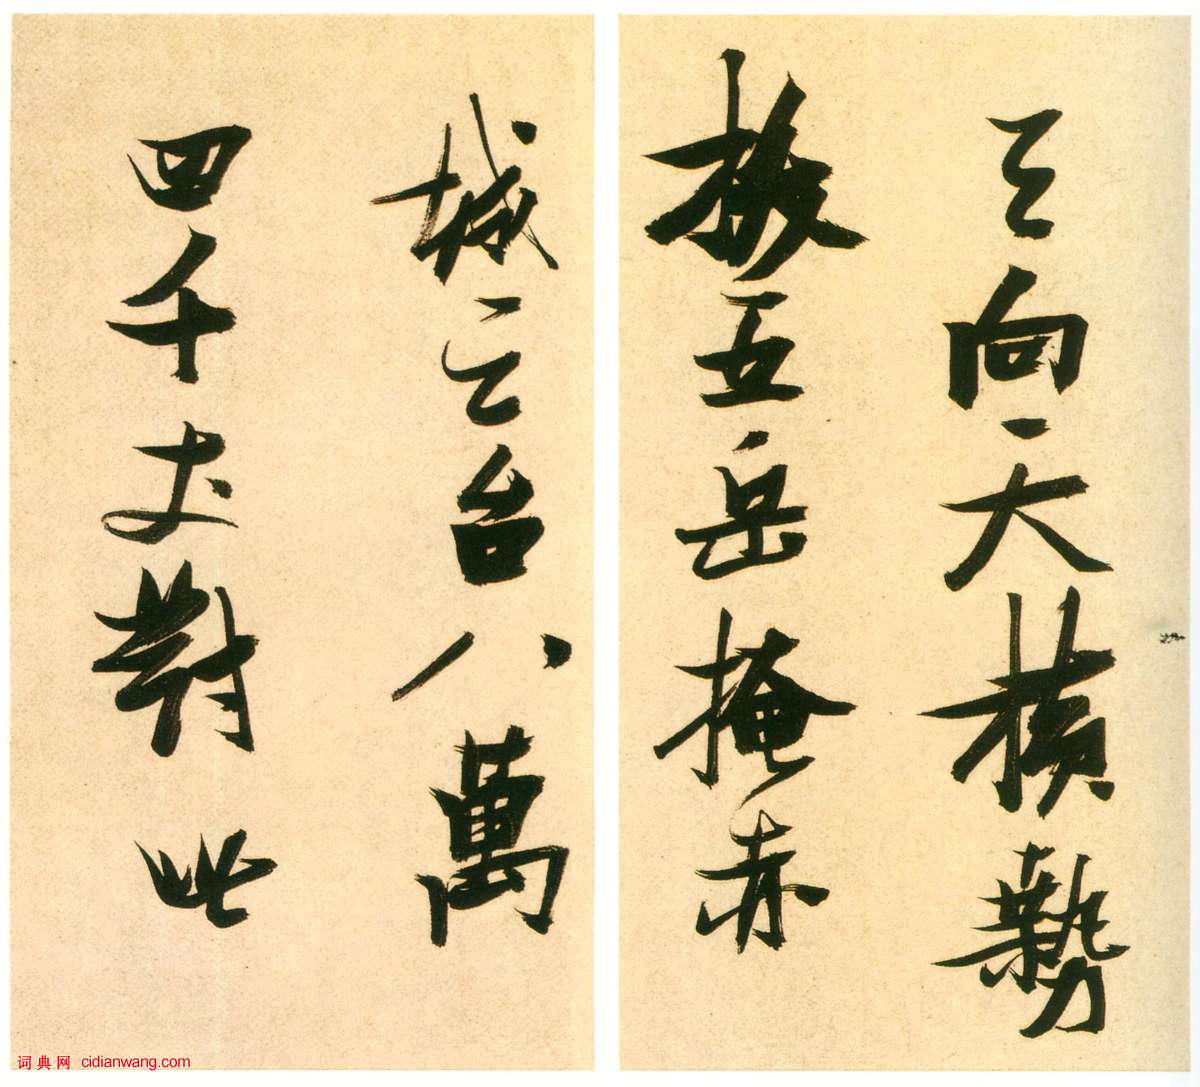 天向天横勢
拔五岳掩赤
城天台八萬
四千丈對此
词典网 cidianwang.com